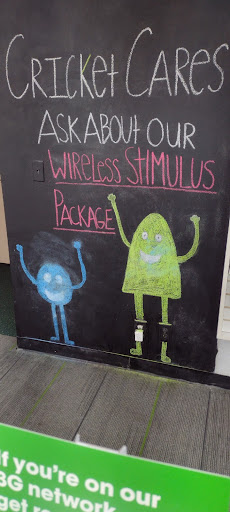 CRICKET CARES
ASK ABOUT OUR
WIRELESS STIMULUS
PACKAGE
If you're on our
3G network
get re